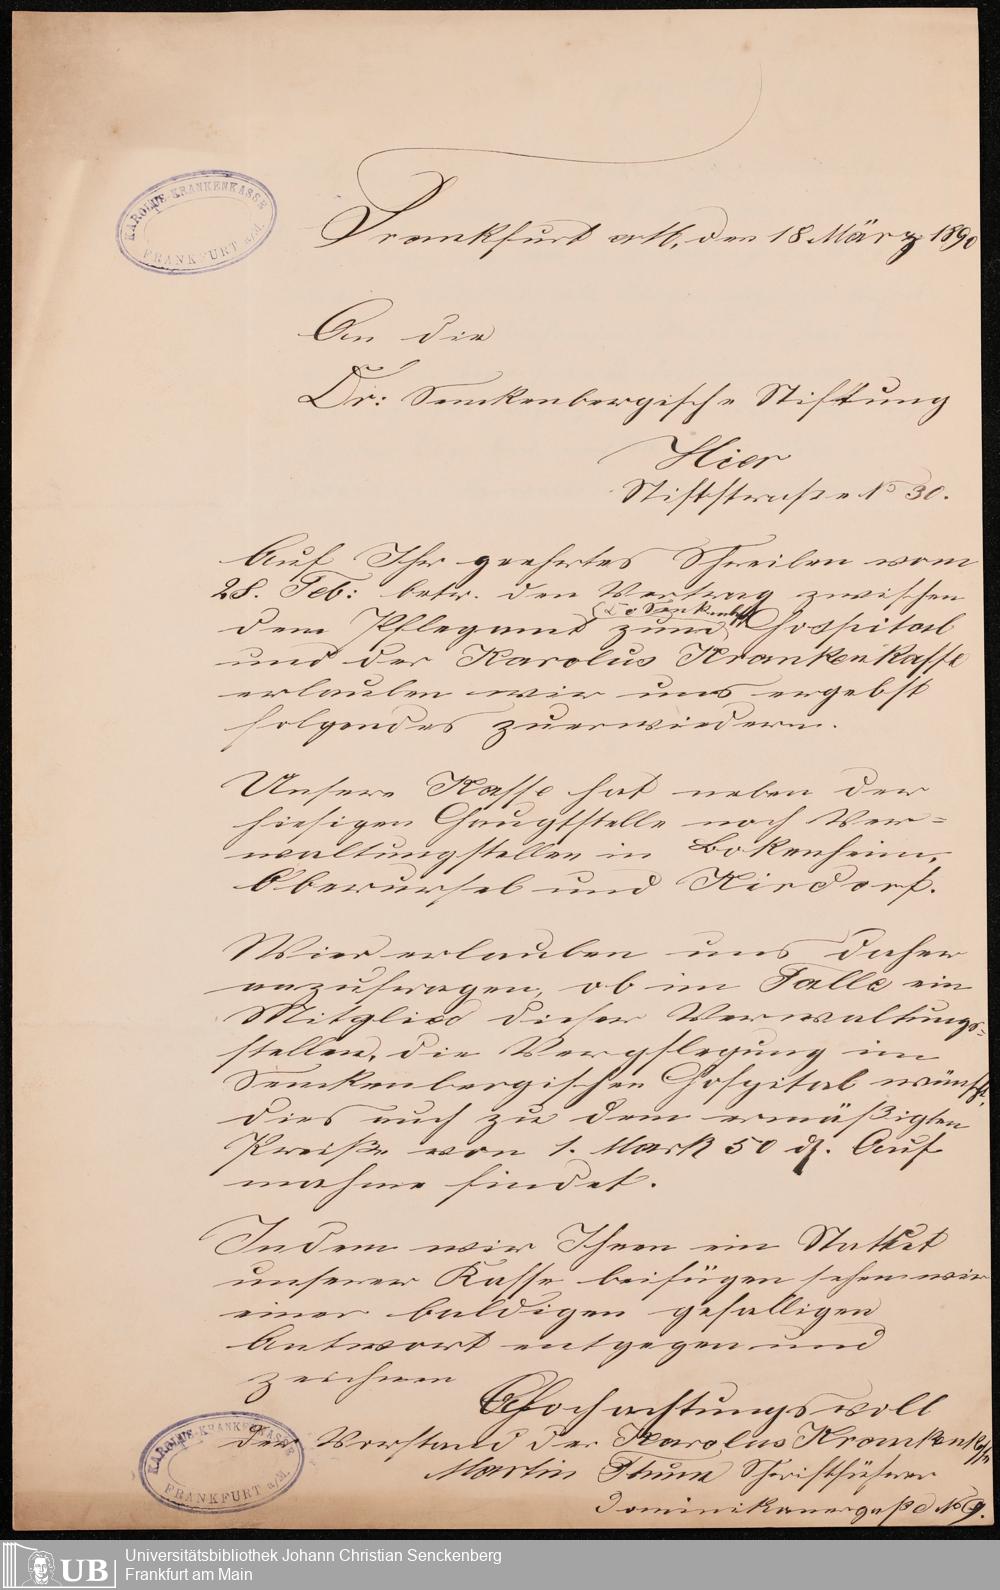 KAROLUS-KRANKENKASSE
FRANKFURT a/M.
Frankfurt a/M, den 18 März 1890
An die
Dr: Senckenbergische Stiftung
Hier
Stiftstraße No 30.
Auf Ihr geehrtes Schreiben vom
28. Feb: betr. den Vertrag zwischen
dem Pflegamt zum Hospital
und der Karolus Krankenkasse
erlauben wir uns ergebst
folgendes zuerwiedern.
Unsere Kasse hat neben der
hiesigen Hauptstelle noch Ver=
waltungstellen in Bokenheim,
Oberursel und Kirdorf.
Wier erlauben uns daher
anzufragen, ob im Falle ein
Mitglied dieser Verwaltungs=
stellen, die Verpflegung im
Senckenbergischen Hospital wünscht,
dies auch zu dem ermäßigten
Preiße von 1. Mark 50 ₰. Auf
nahme findet.
Indem wir Ihnen ein Statut
unserer Kasse beifügen sehen wir
einer baldigen gefälligen
Antwort entgegen und
zeichnen
Hochachtungsvoll
Der Vorstand der Karolus Krankenkasse
Martin Schriftführer
Dominikanergaße No 9.
KAROLUS-KRANKENKASSE
FRANKFURT a/M.
UB
Universitätsbibliothek Johann Christian Senckenberg
Frankfurt am Main